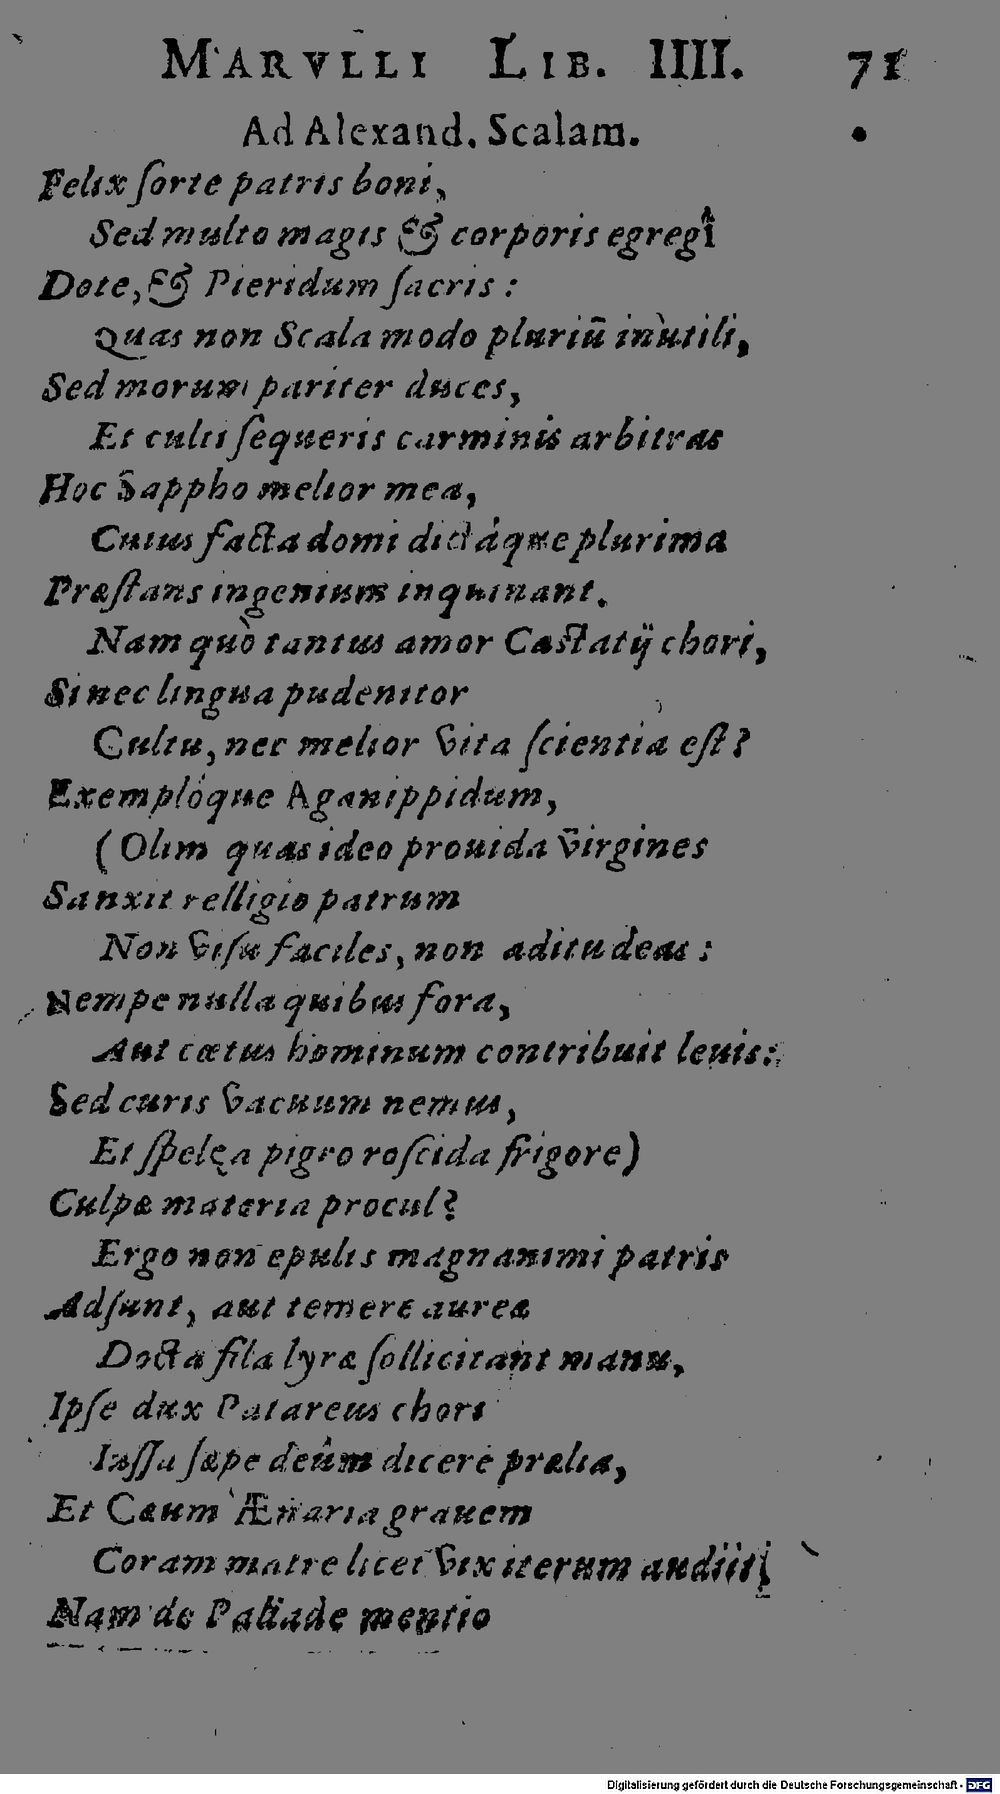 MARVLLI LIB. IIII. 71
Ad Alexand. Scalam.
Felix ſorte patris boni,
Sed multo magis & corporis egregî
Dote, & Pieridum ſacris:
Quas non Scala modo pluriũ inutili,
Sed morum pariter duces,
Et culti ſequeris carminis arbitras
Hoc Sappho melior mea,
Cuius facta domi dictáque plurima
Præſtans ingenium inquinant.
Nam quò tantus amor Castatij chori,
Si nec lingua pudentior
Cultu, nec melior vita ſcientia eſt?
Exemplóque Aganippidum,
(Olim quas ideo prouida virgines
Sanxit relligio patrum
Non viſu faciles, non aditu deas:
Nempe nulla quibus fora,
Aut cœtus hominum contribuit leuis:
Sed curis vacuum nemus,
Et ſpelęa pigro roſcida frigore)
Culpæ materia procul?
Ergo non epulis magnanimi patris
Adſunt, aut temere aureæ
Docta fila lyræ ſollicitant manu,
Ipſe dux Patareus chori
Iuſſu ſæpe deûm dicere prælia,
Et Cæum Ænaria grauem
Coram matre licet vix iterum audiit;
Nam de Pallade mentio
Digitalisierung gefördert durch die Deutsche Forschungsgemeinschaft - DFG